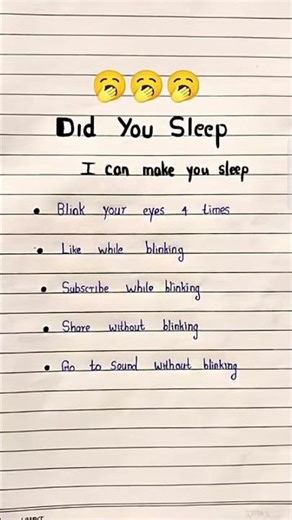 🥱🥱🥱
Did You Sleep
I can make you sleep
• Blink your eyes 4 times
• Like while blinking
• Subscribe while blinking
• Share without blinking
• Go to Sound without blinking